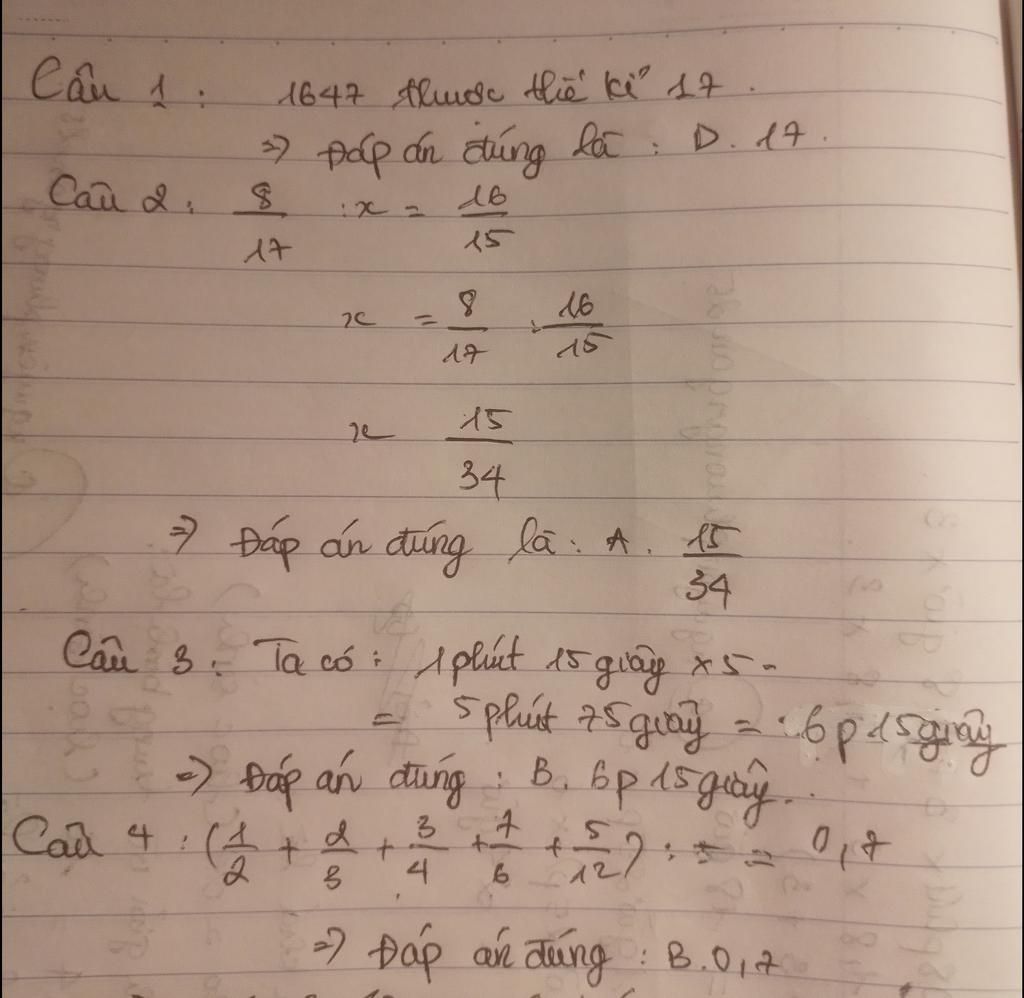 Câu 1 : 1647 thuộc thế kỉ 17 .
=> Đáp án đúng là : D. 17 .
Câu 2 : 8/17 : x = 16/15
x = 8/17 : 16/15
x 15/34
=> Đáp án đúng là : A . 15/34
Câu 3 : Ta có : 1 phút 15 giây x 5 =
= 5 phút 75 giây = 6p 15 giây
=> Đáp án đúng : B. 6p 15 giây.
Câu 4 : (1/2 + 2/3 + 3/4 + 7/6 + 5/12) : = 0,7
=> Đáp án đúng : B. 0,7